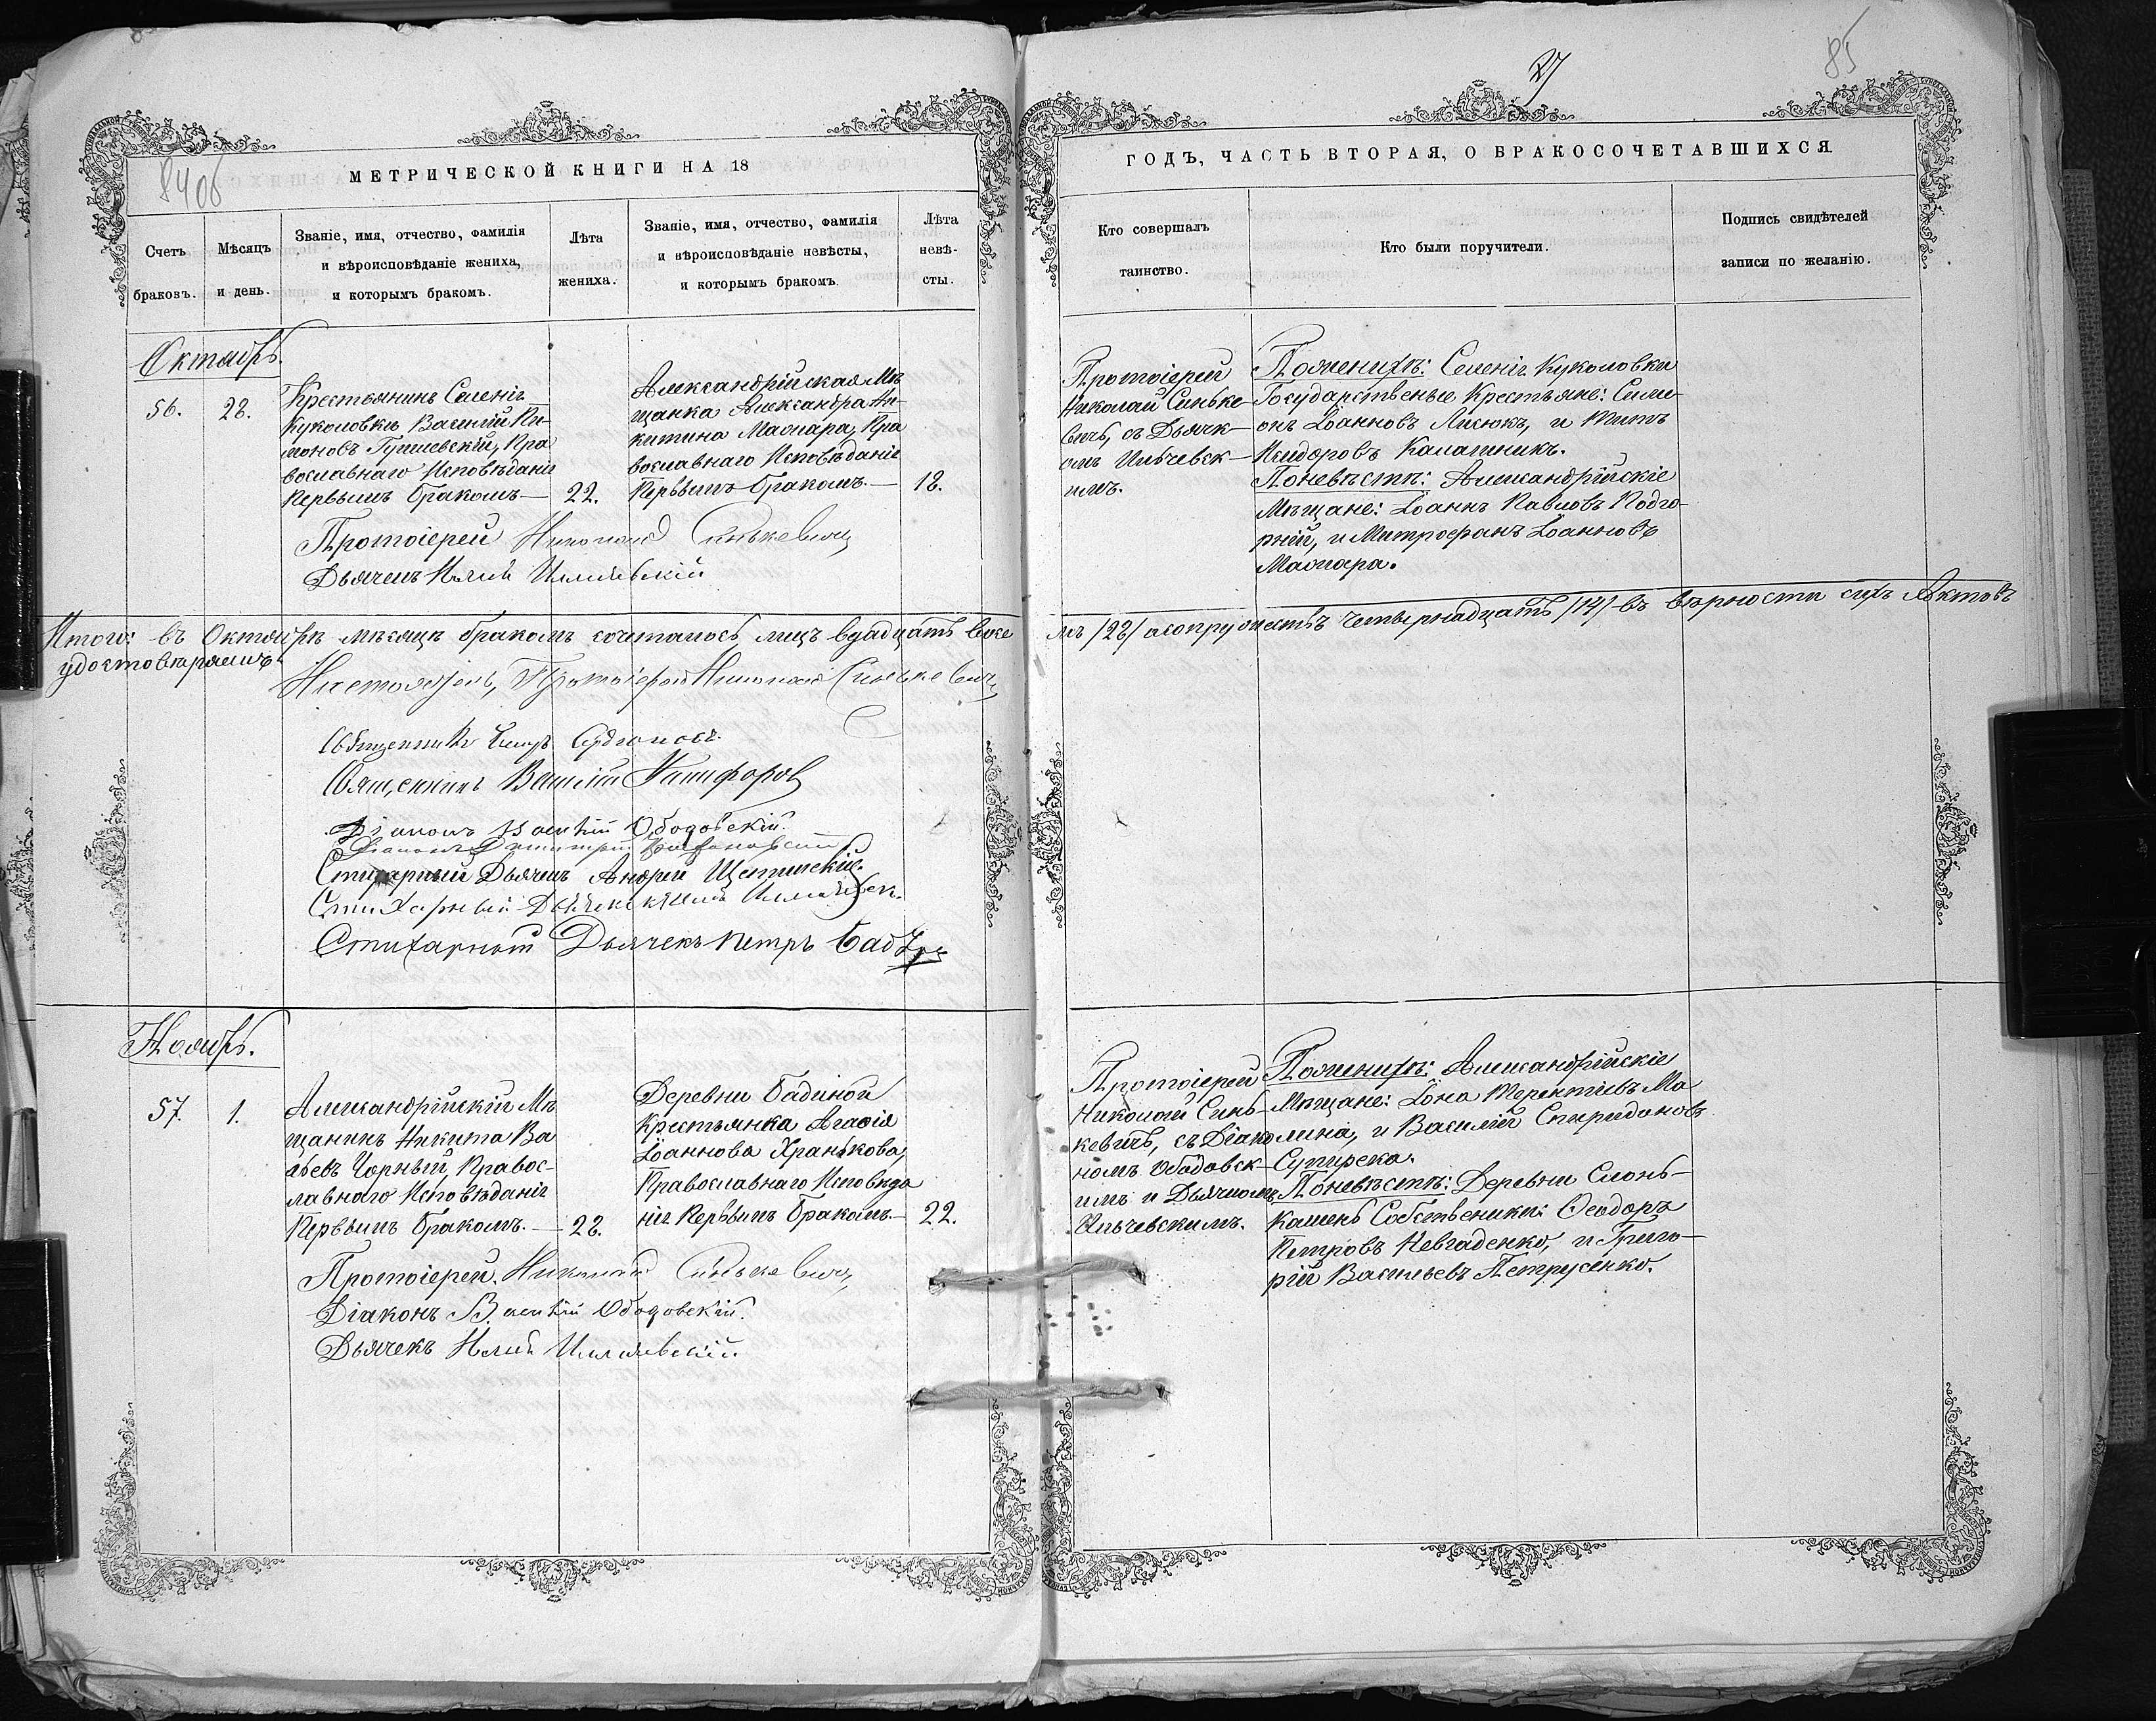 27
85
84об
МЕТРИЧЕСКОЙ КНИГИ НА 18
Счетъ
браковъ.
Мѣсяцъ
и день.
Званіе, имя, отчество, фамилія
и вѣроисповѣданіе жениха,
и которымъ бракомъ.
Лѣта
жениха.
Званіе, имя, отчество, фамилія
и вѣроисповѣданіе невѣсты,
и которымъ бракомъ.
Лѣта
невѣ-
сты.
Октябрь.
56.
28.
Крестьянинъ Селенія
Куколовки Василій
Православнаго Исповѣданія
Первымъ бракомъ—
22.
Александрійская Мѣ
щанка Александра Ни-
китина Маслара, Пра
вославнаго Исповѣданія
Первымъ бракомъ.—
18.
Протоіерей Николай Синькевичъ
Дьячекъ
Итого: въ Октябрѣ мѣсяцѣ бракомъ сочеталось лицъ вдадцать восе
удостовѣряемъ
Настоятель, Протоіерей Николай Синькевичъ
Священникъ
Священникъ Василій Никифоров
Діаконъ Василій Ободовскій.
Діаконъ Димитрій
Стихарный Дьячекъ Андрей
Стихарный Дьячекъ
Стихарный Дьячекъ Петръ
Ноябрь.
57.
1.
Александрійскій Мѣ
щанинъ Никита Ва
Чорный, Правос-
лавнаго Исповѣданія
Первымъ бракомъ.—
28.
Деревни Бадиной
Крестьянка Агафія
Іоаннова Хранькова,
Православнаго Исповѣда
нія Первымъ бракомъ.—
22.
Протоіерей Николай Синькевичъ,
Діаконъ Василій Ободовскій.
Дьячекъ
ГОДЪ, ЧАСТЬ ВТОРАЯ, О БРАКОСОЧЕТАВШИХСЯ.
Кто совершалъ
таинство.
Кто были поручители.
Подпись свидѣтелей
записи по желанію.
Протоіерей
Николай Синьке-
вичъ, съ Дьячк-
омъ Ильчевск-
имъ.
По женихѣ: Селенія Куколовки
Государственые Крестьяне: Сими-
онъ Іоанновъ Лисюкъ, и Титъ
Исидоровъ Калашникъ.
По невѣстѣ: Александрійскіе
Мѣщане: Іоаннъ Павловъ Подго-
рній, и Митрофанъ Іоанновъ
Маслара.
мъ /28/ а супружествъ четырнадцать /14/ въ вѣрности сихъ Актовъ
Протоіерей
Николай Синь-
кевичъ, съ Діако
номъ Ободовск-
имъ и Дьячкомъ
Ильчевскимъ.
По женихѣ: Александрійскіе
Мѣщане: Іона Терентіевъ Ма
лина, и Василій Спиридоновъ
Супирека.
По невѣстѣ: Деревни Слонь-
камень Собственики: Ѳеодоръ
Петровъ Невгаденко, и Григо-
рій Васильевъ Петрусенко.